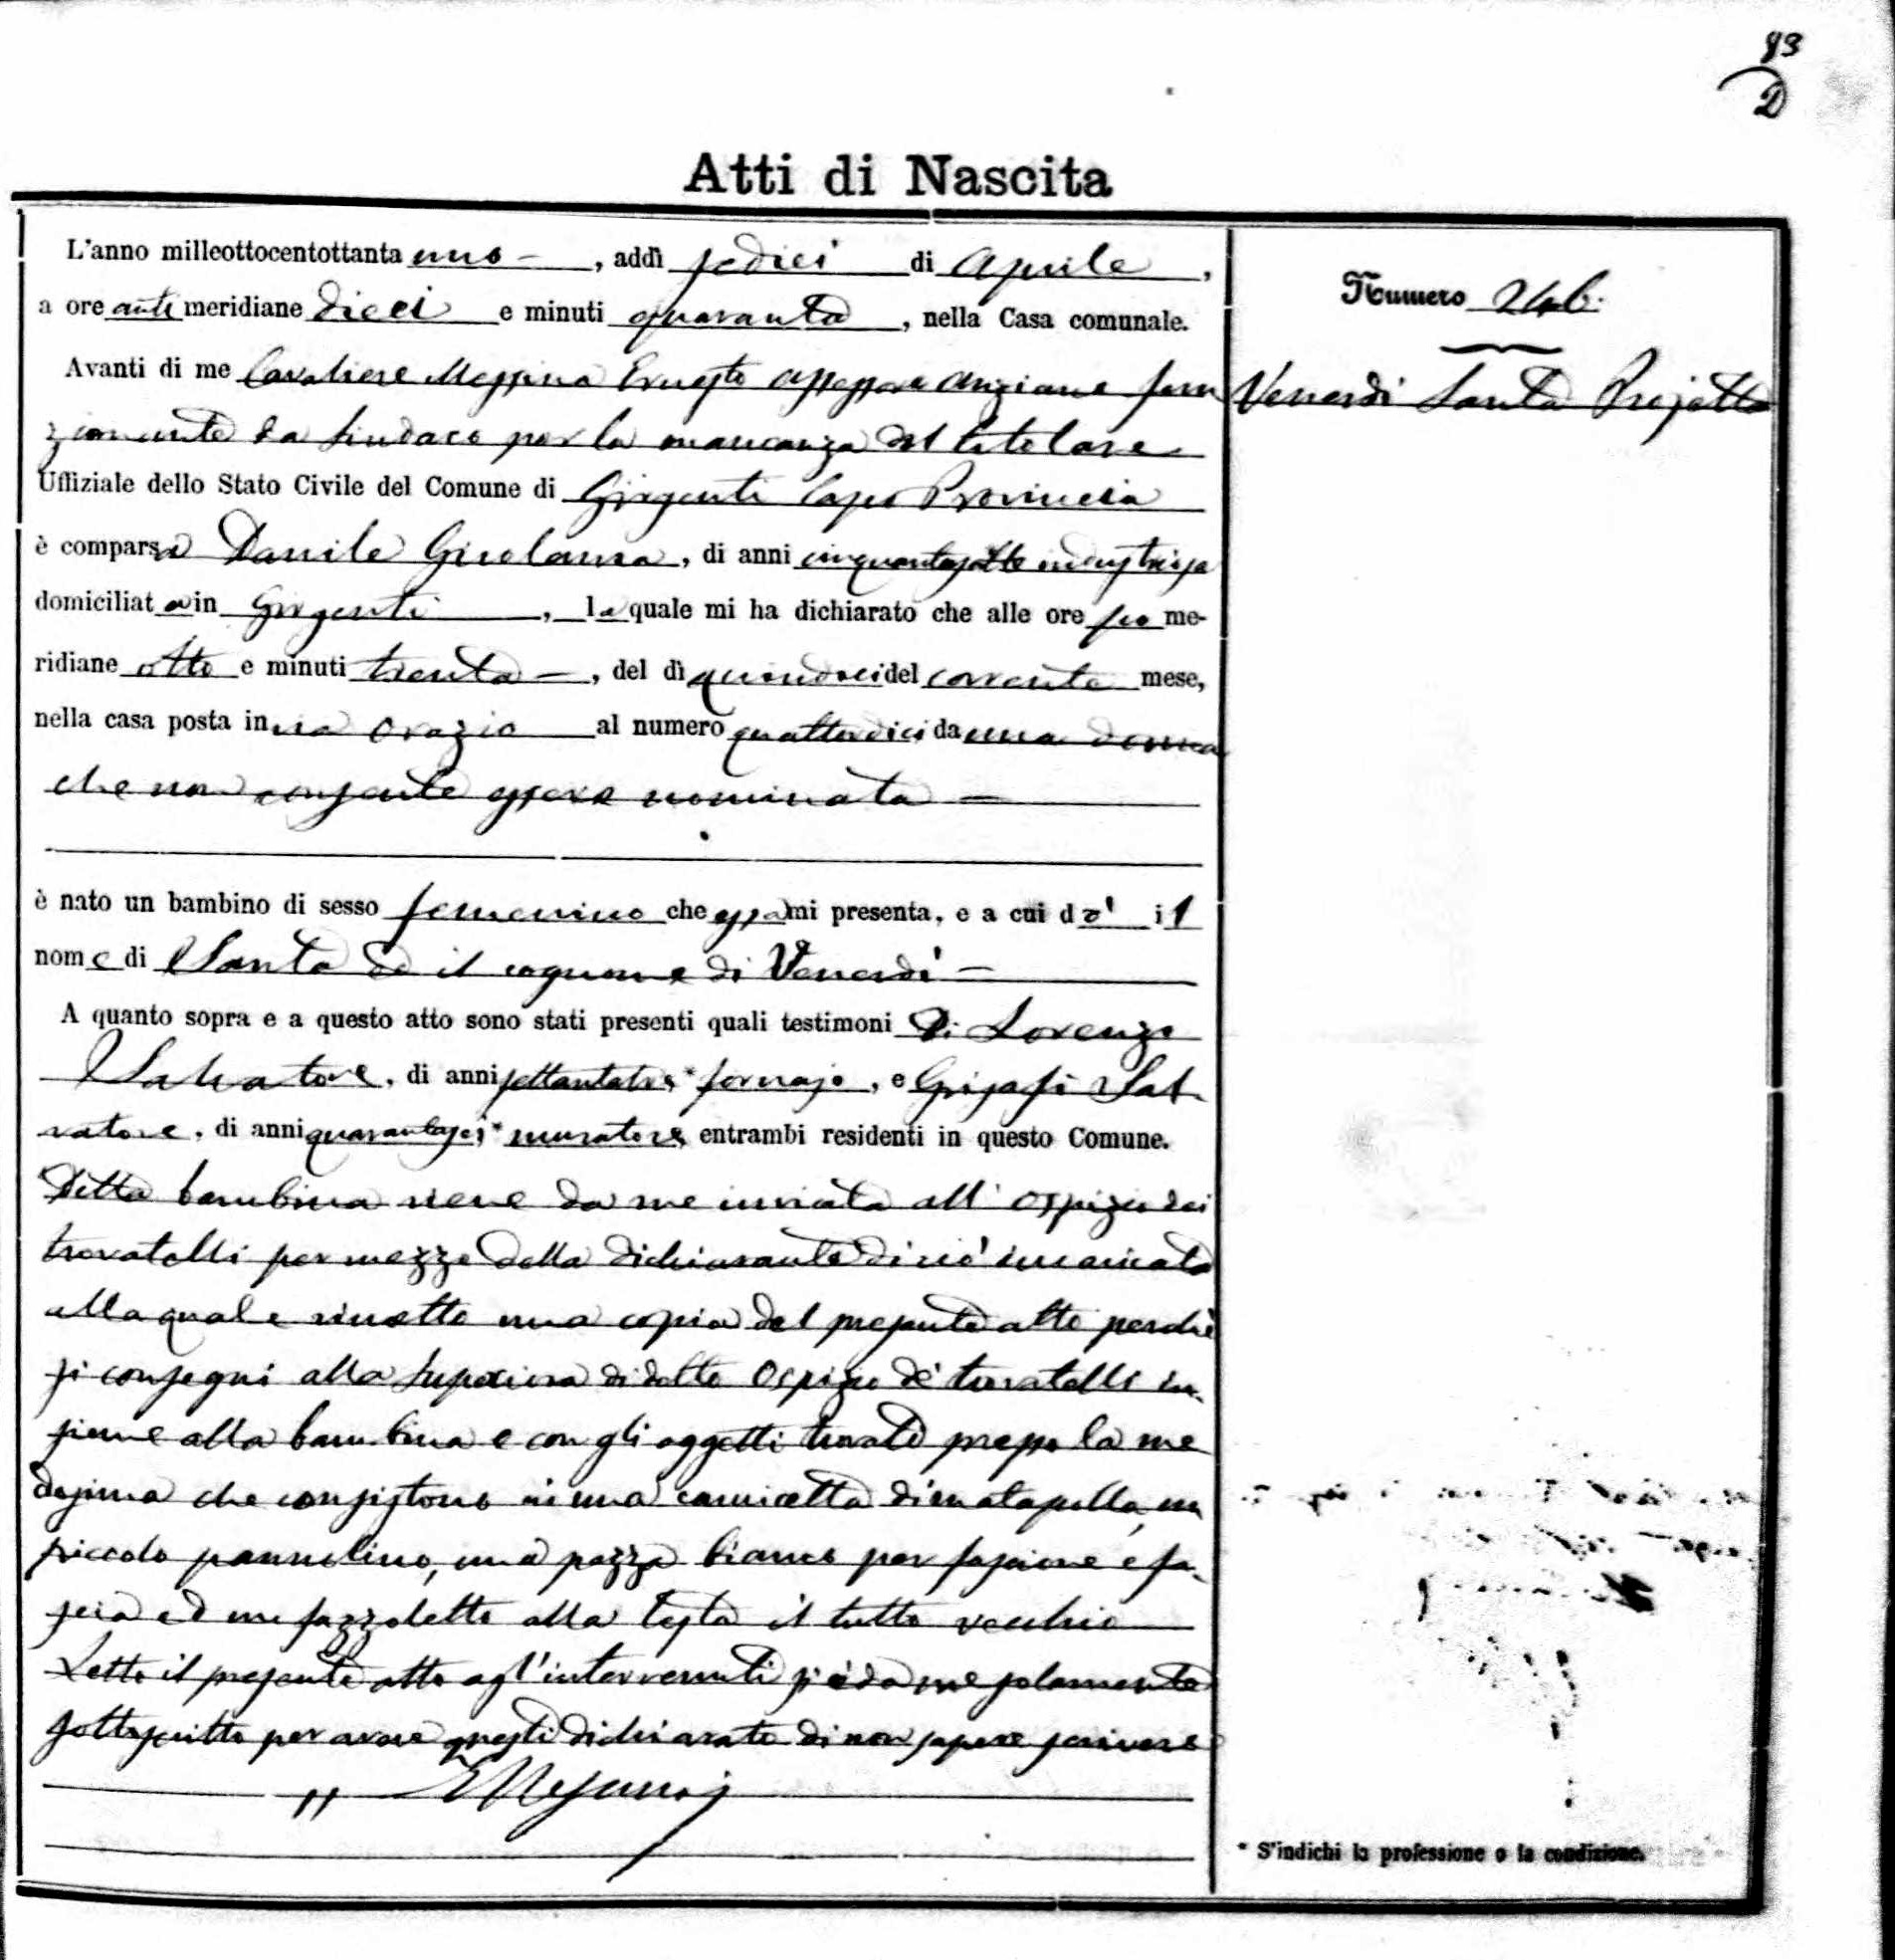 83
D
Atti di Nascita
L'anno milleottocentottanta uno –, addì sedici di Aprile,
a ore anti meridiane dieci e minuti quaranta, nella Casa comunale.
Avanti di me Cavaliere Messina Ernesto Assessore Anziano fun
zionante da Sindaco per la mancanza del titolare
Uffiziale dello Stato Civile del Comune di Girgenti Capo Provincia
è comparsa Danile Girolama, di anni cinquantasette industriosa
domiciliata in Girgenti, la quale mi ha dichiarato che alle ore po me-
ridiane otto e minuti trenta –, del dì quindici del corrente mese,
nella casa posta in via Orazio al numero quattordici da una donna
che non consente essere nominata –
è nato un bambino di sesso femenino che essa mi presenta, e a cui dò il
nome di Santa ed il cognome di Venerdì –
A quanto sopra e a questo atto sono stati presenti quali testimoni Di Lorenzo
Salvatore, di anni settantatre * fornajo, e Grisafi Sal
vatore, di anni quarantasei * muratore, entrambi residenti in questo Comune.
Detta bambina viene da me inviata all' Ospizio dei
trovatelli per mezzo della dichiarante di ciò incaricata
alla quale rimetto una copia del presente atto perchè
si consegni alla Superiora di detto Ospizio de' trovatelli in-
sieme alla bambina e con gli oggetti trovati presso la me
desima che consistono in una camicetta di matapolla, un
piccolo pannolino, una pezza bianca per fascione e fa-
scia ed un fazzoletto alla testa il tutto vecchio
Letto il presente atto agl'intervenuti si è da me solamente
sottoscritto per avere questi dichiarato di non sapere scrivere
Numero 246.
Venerdì Santa Projetta
* S'indichi la professione o la condizione.